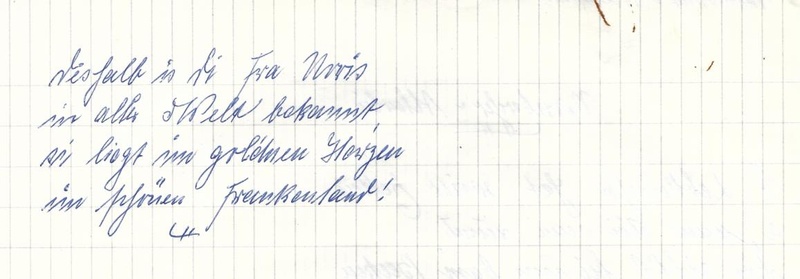 deshalb is di Fra Noris
in aller Welt bekannt,
si liegt im goldnen Herzen
im schönen Frankenland!